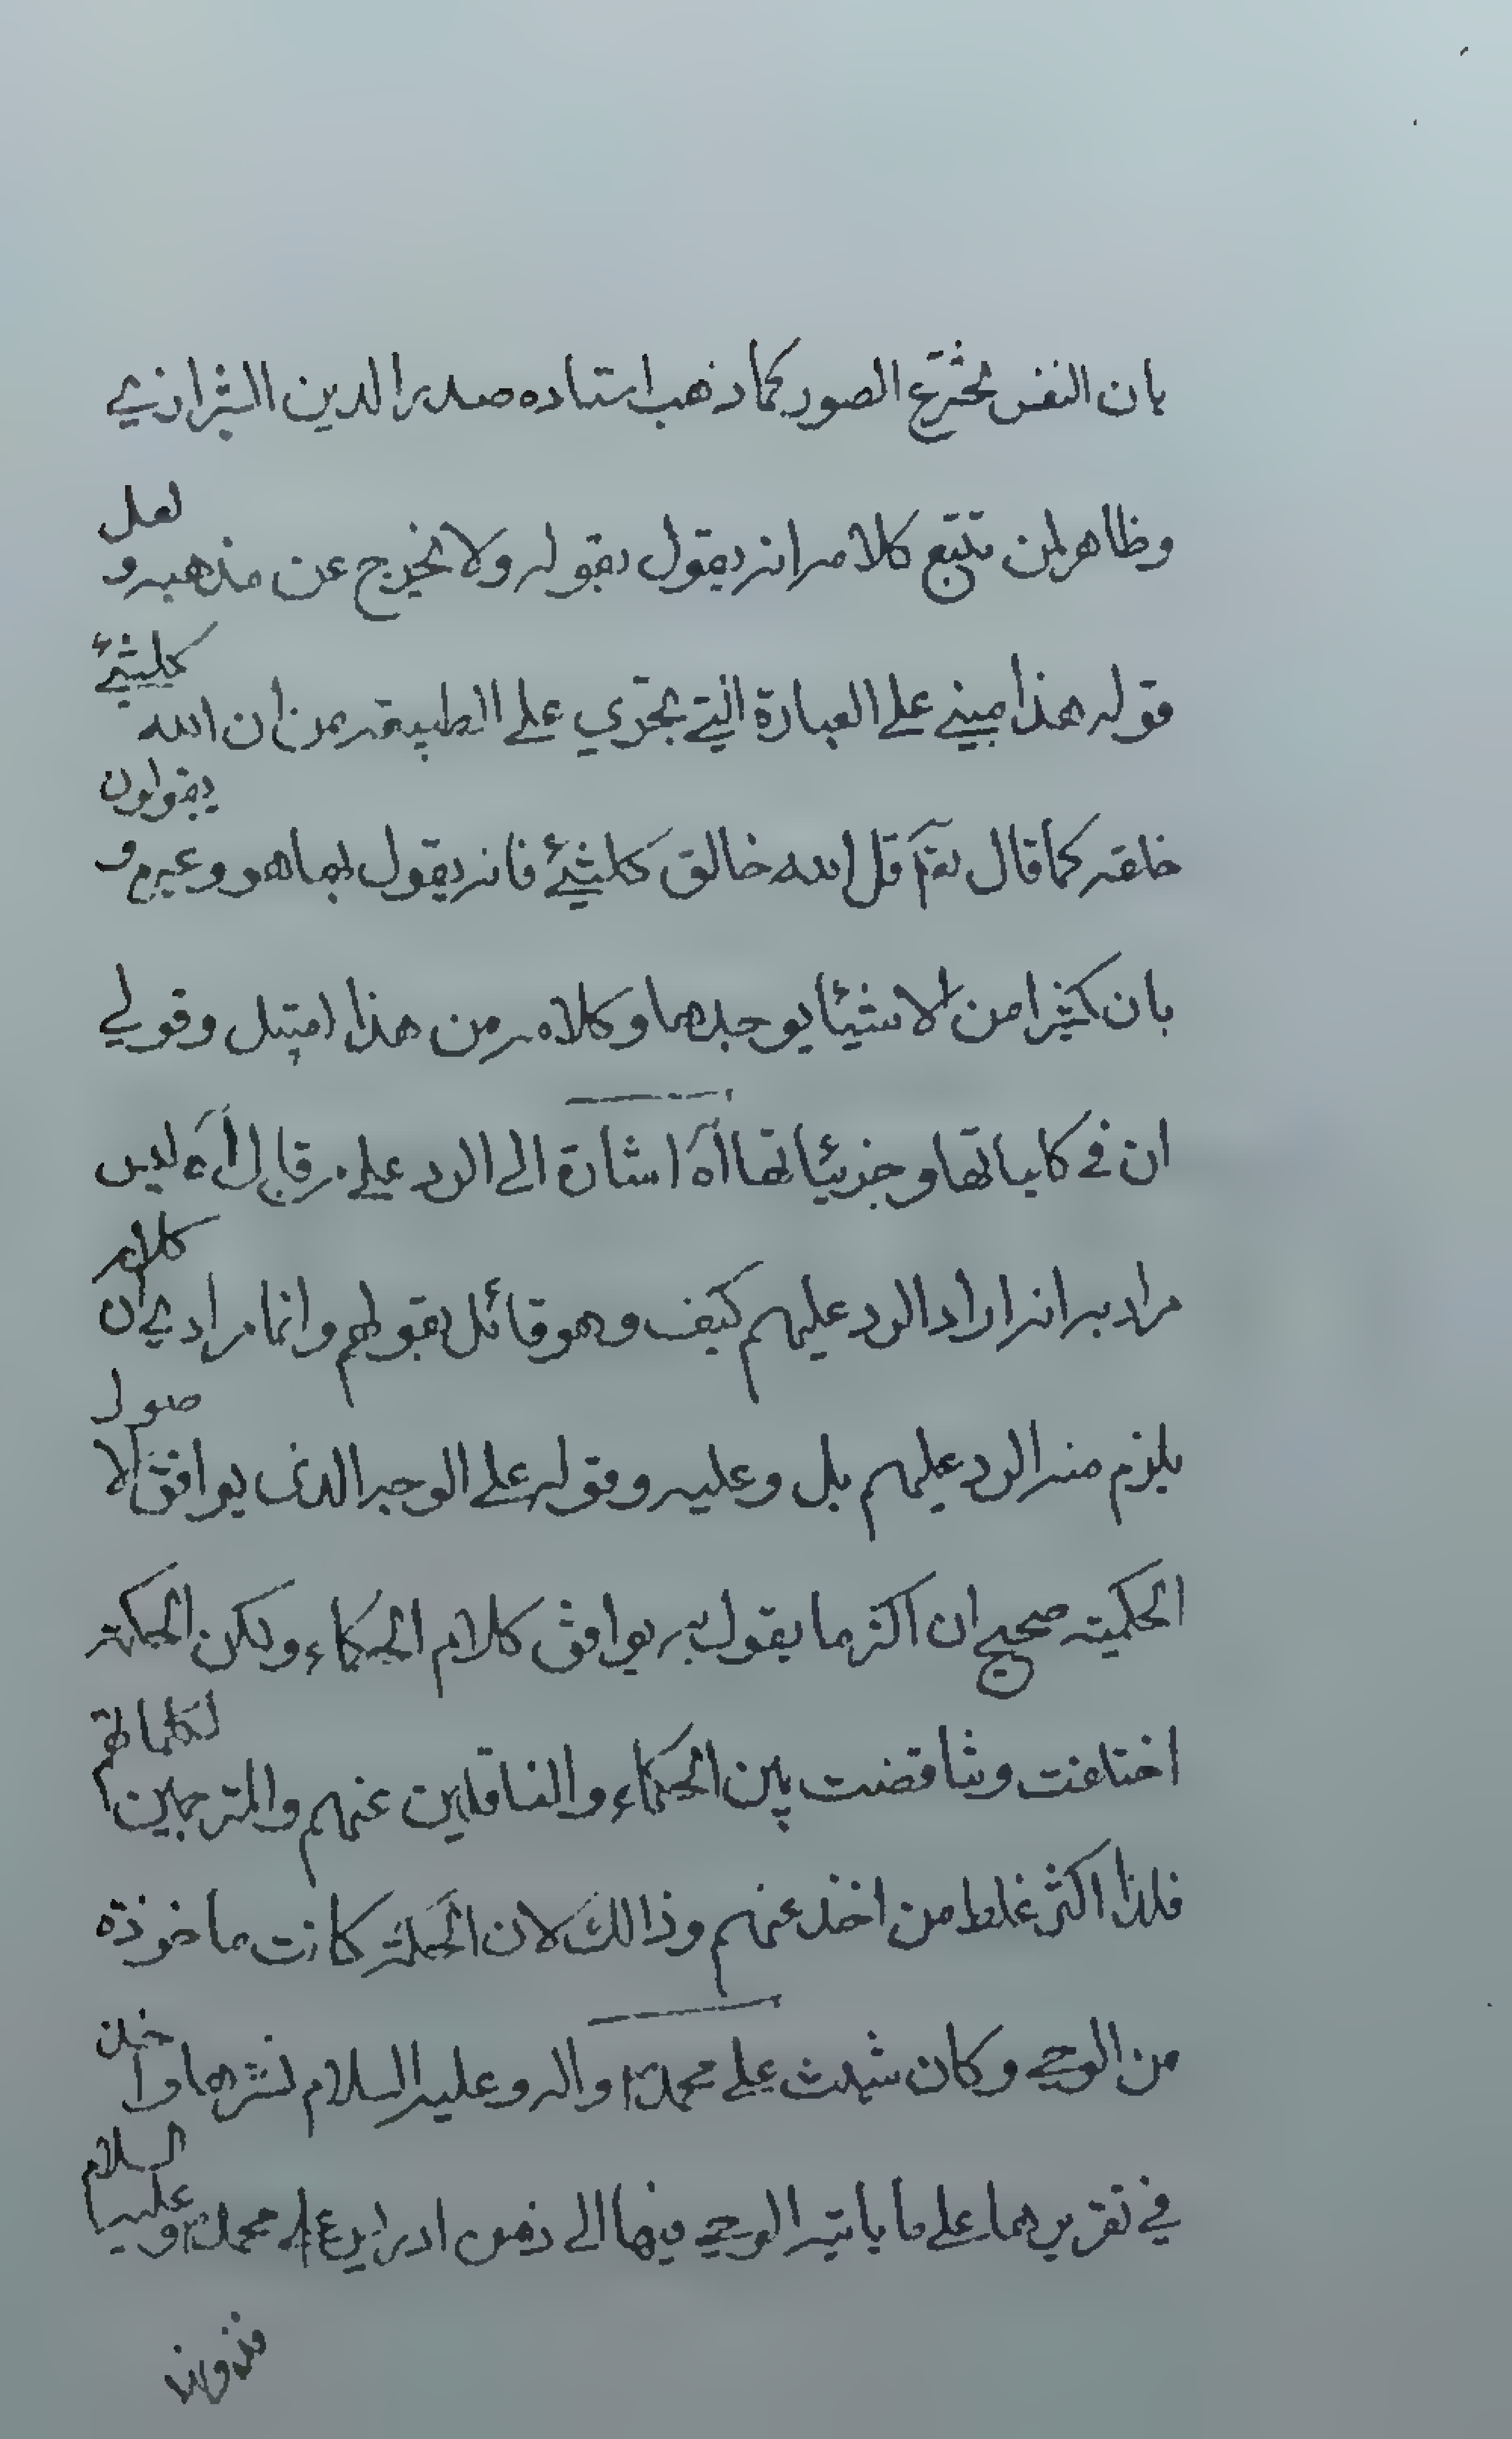 بان النفس تخترع الصور كما ذهب استاده صدر الدين الشرازي
وظاهر لمن تتبع كلامه انه يقول بقوله ولا يخرج عن مذهبه و لعل
قوله هذا مبني على العبارة التي تجري على الطبيعة من ان الله كلشئ
خلقه كما قال تعالى قل الله خالق كلشئ فانه يقول بها هو وغيره و يقولون
بان كثيرا من الاشيئا يوجدها وكلامه من هذا القبيل وقولي
ان في كلياتها وجزئياتها آه اشارة الى الرد عليه قال آه ليس
مراد به انه اراد الرد عليهم كيف وهو قائل بقولهم وانما مرادي ان كلامه
يلزم منه الرد عليهم بل وعليه وقوله على الوجه الذى يوافق الا صول
الحكمية صحيح ان اكثر ما يقول به يوافق كلام الحكماء ولكن الحكمة
اختلفت وتناقضت بين الحكماء والناقلين عنهم والمترجمين لكلماتهم
فلذا اكثر غلط من اخذ عنهم وذالك لان الحكمة كانت ماخوذة
من الوحي وكان شيث على محمد واله وعليه السلام نشرها وا خذ
في تقريرهما على ما ياتيه الوحي فيها الى زمن ادريس على محمد و عليه السلام